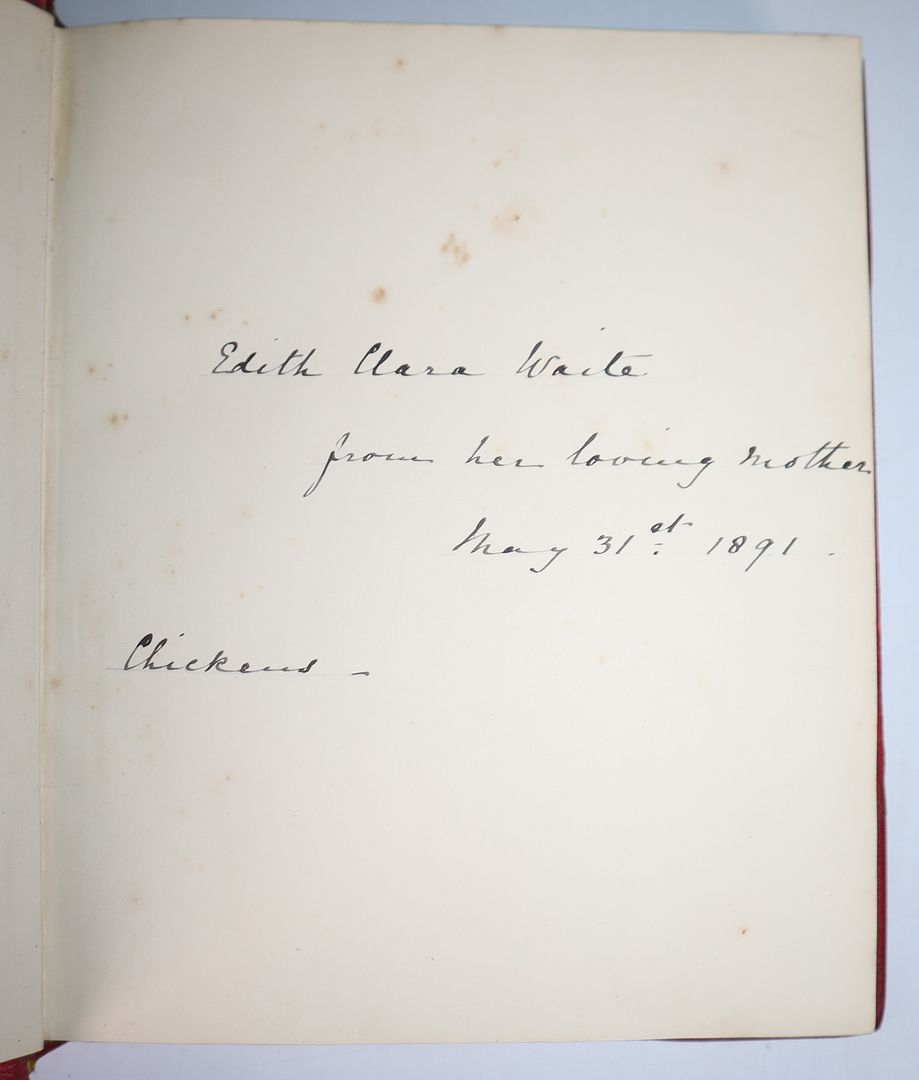 Edith Clara Waite
from her loving mother
May 31st 1891.
Chickens –